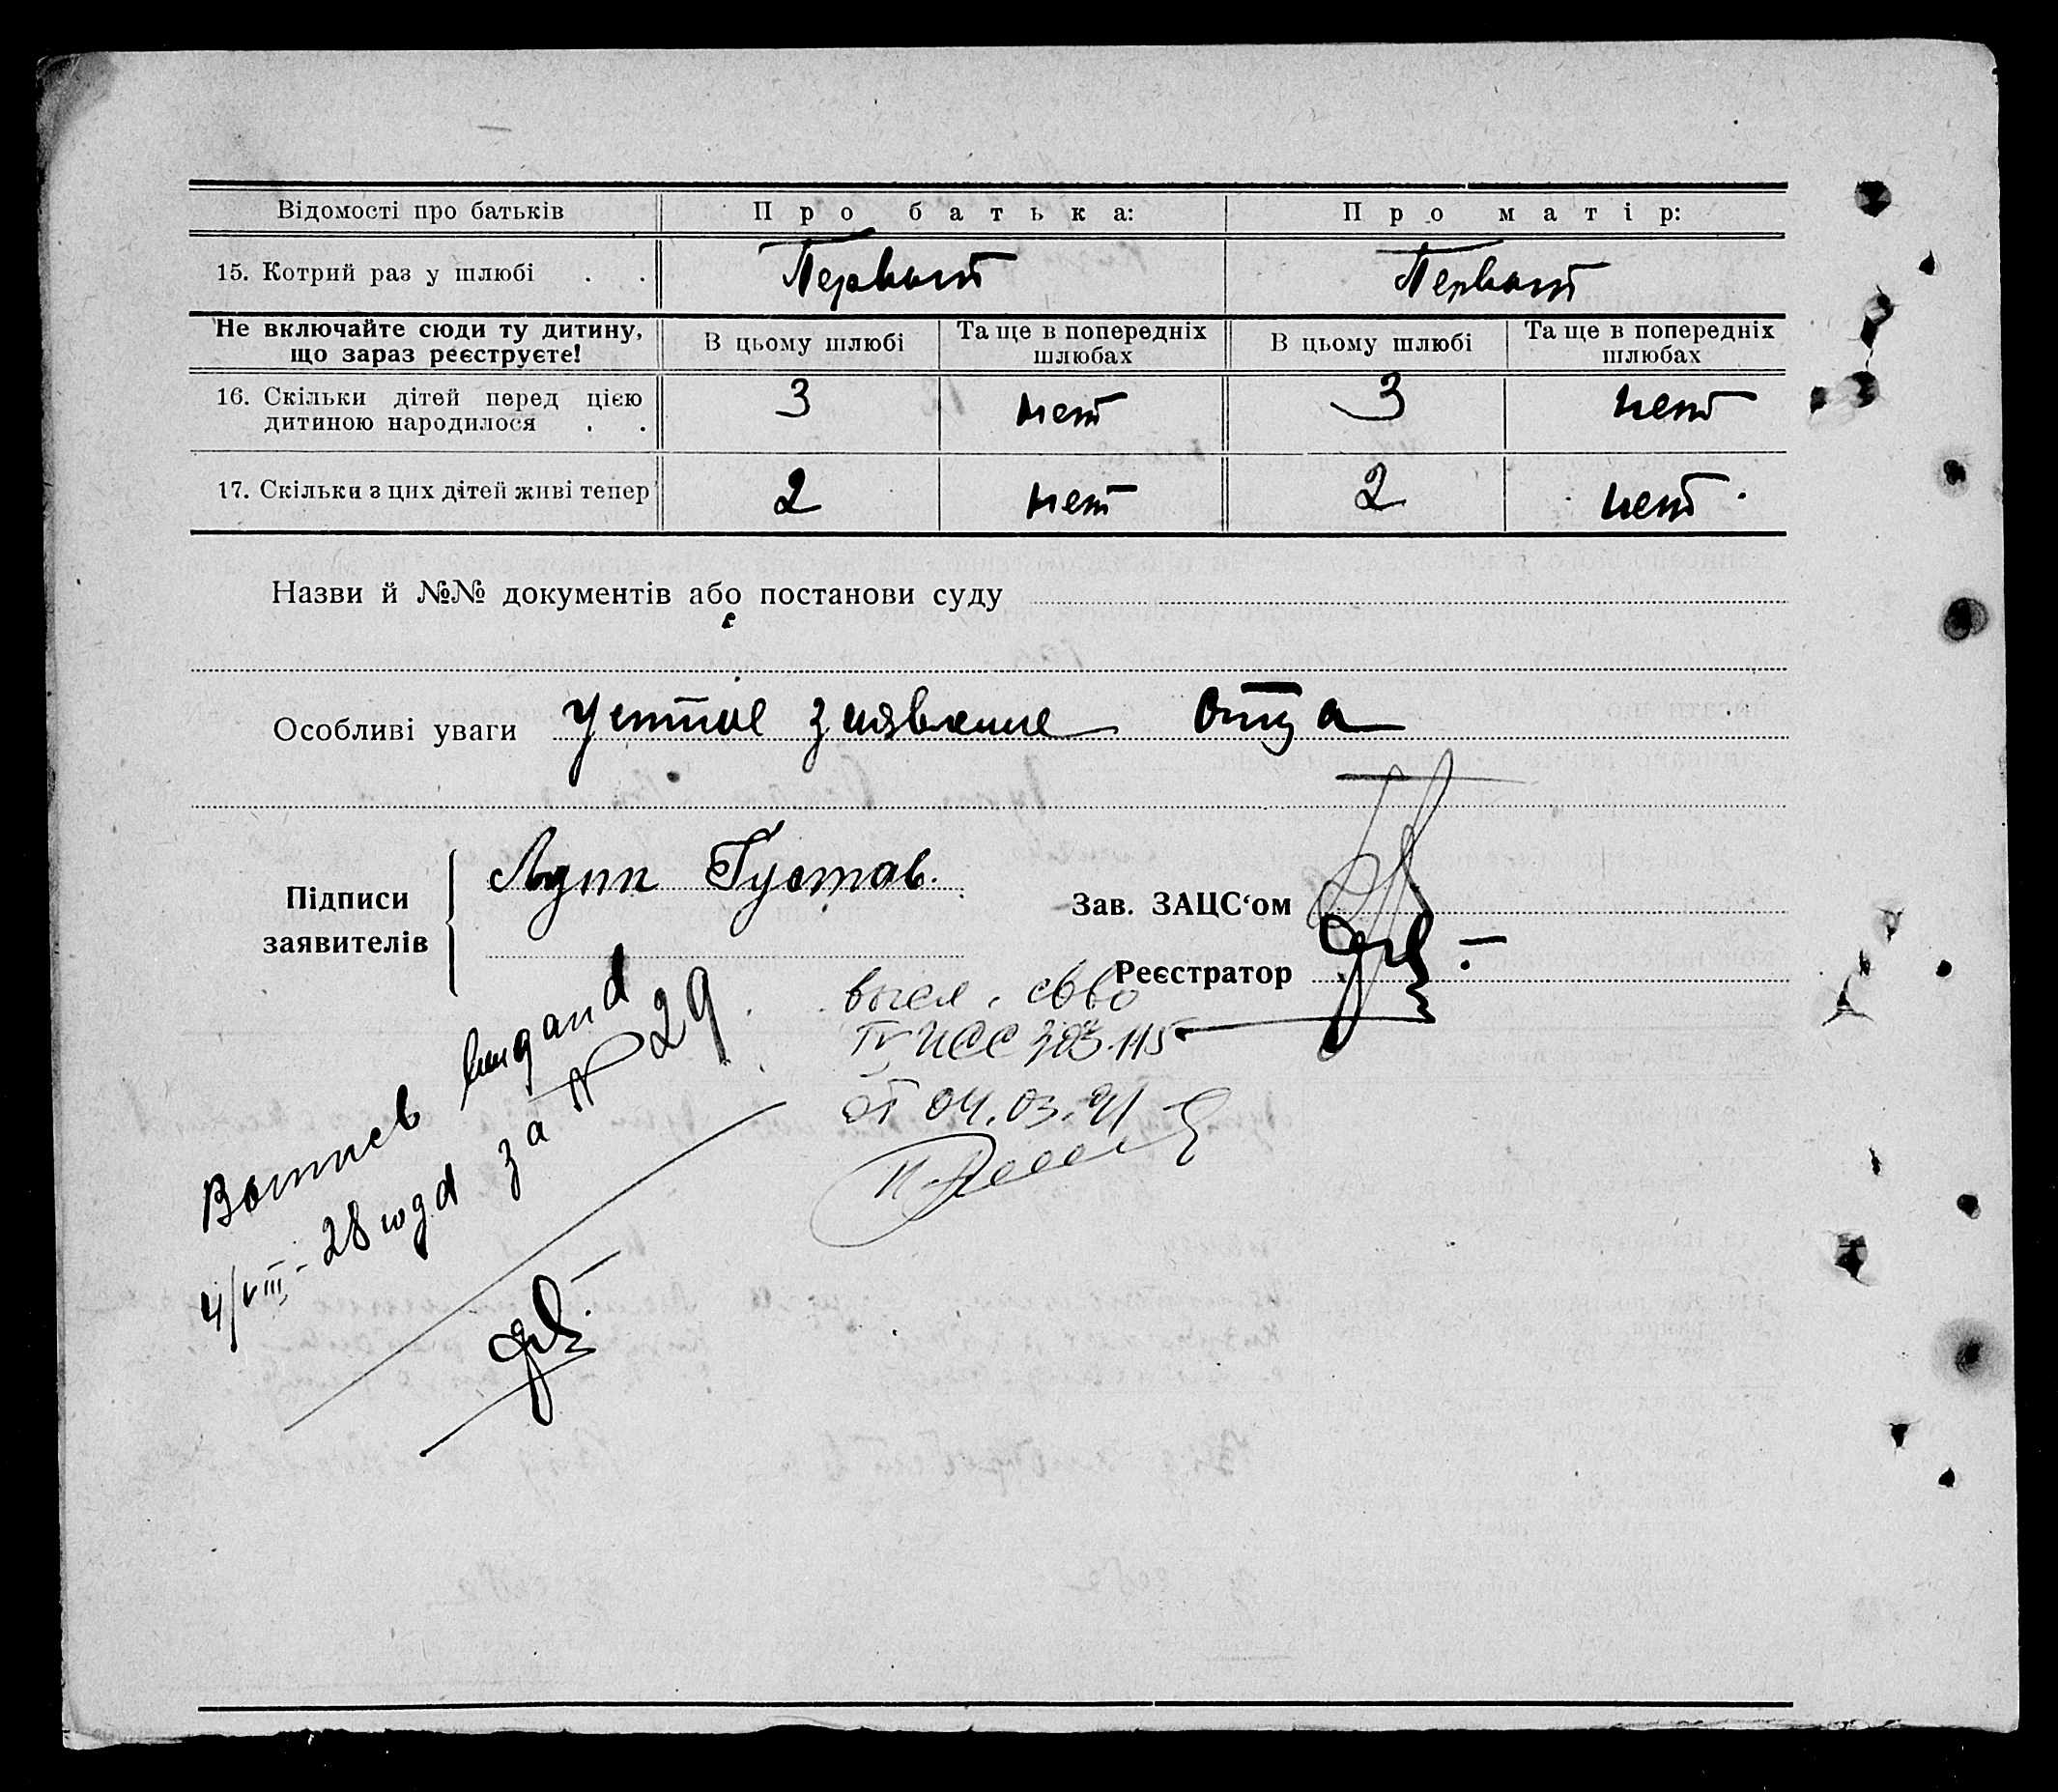 Відомості про батьків Про батька: Про матір:
15. Котрий раз у шлюбі . . Первый Первый
Не включайте сюди ту дитину, що зараз реєструєте! В цьому шлюбі Та ще в попередніх шлюбах В цьому шлюбі Та ще в попередніх шлюбах
16. Скільки дітей перед цією дитиною народилося . . 3 нет 3 нет
17. Скільки з цих дітей живі тепер 2 нет 2 нет
Назви й №№ документів або постанови суду
Особливі уваги Устное заявление отца
Підписи заявителів Густав.
Зав. ЗАЦС‘ом
Реєстратор
4/VIII - 28 года за № 29
высл. св во
IV ИСС
от 04.03.91